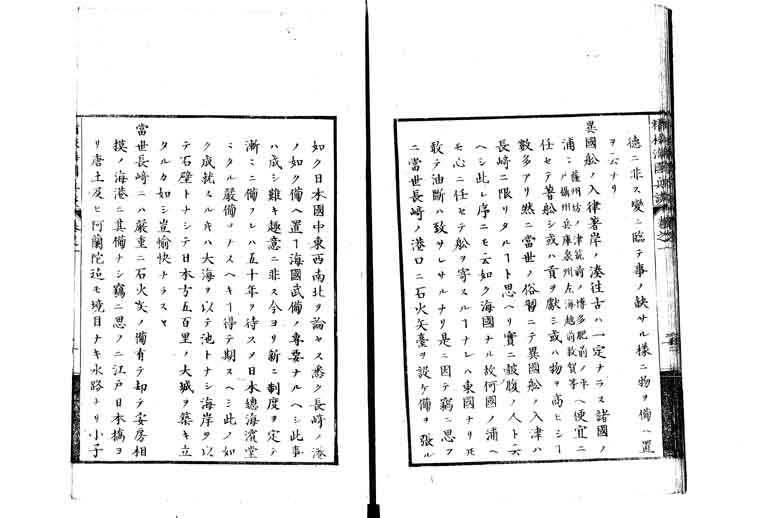 德ニ非ス變ニ臨テ事ノ缺サル樣ニ物ヲ備ヘ置
ヲ云ナリ
異國舩ノ入津著岸ノ湊往古ハ一定ナラス諸國ノ
浦ミ薩州坊ノ津筑前ノ博多肥前ノ平戸攝州兵庫泉州左海越前敦賀等ヘ便宜ニ
任セテ着舩シ或ハ貢ヲ獻シ或ハ物ヲ商ヒシー
數多アリ然ニ當世ノ俗習ニテ異國舩ノ入津ハ
長崎ニ限リタルート思ヘリ實ニ皷腹ノ人ト云
ヘシ此レ序ニモ云如ク海國ナル故何國ノ浦ヘ
モ心ニ任セテ舩ヲ寄スルーナレハ東國ナリ圧
敢テ油斷ハ致サレサルナリ是ニ因テ竊ニ思フ
ニ當世長崎ノ港口ニ石火矢臺ヲ設ケ備ヲ張ル
如ク日本國中東西南北ヲ論セス悉ク長崎ノ港
ノ如ク備ヘ置ー海國武備ノ專要ナルヘシ此事
ハ成シ難キ趣意ニ非ス今ヨリ新ニ制度ヲ定テ
漸ミニ備フレハ五十年ヲ待スノ日本總海濱堂
ミタル嚴備ヲナスヘキー得テ期スヘシ此ノ如
ク成就スルキハ大海ヲ以テ池トナシ海岸ヲ以
テ石壁トナシテ日本方五百里ノ大城ヲ築キ立
タルカ如シ豈愉快ナラスヤ
當世長崎ニハ嚴重ニ石火矢ノ備有テ却テ安房相
摸ノ海港ニ其備ナシ竊ニ思ノニ江戸日本橋ヨ
リ唐土及ヒ阿蘭陀迠モ境目ナキ水路ナリ小子